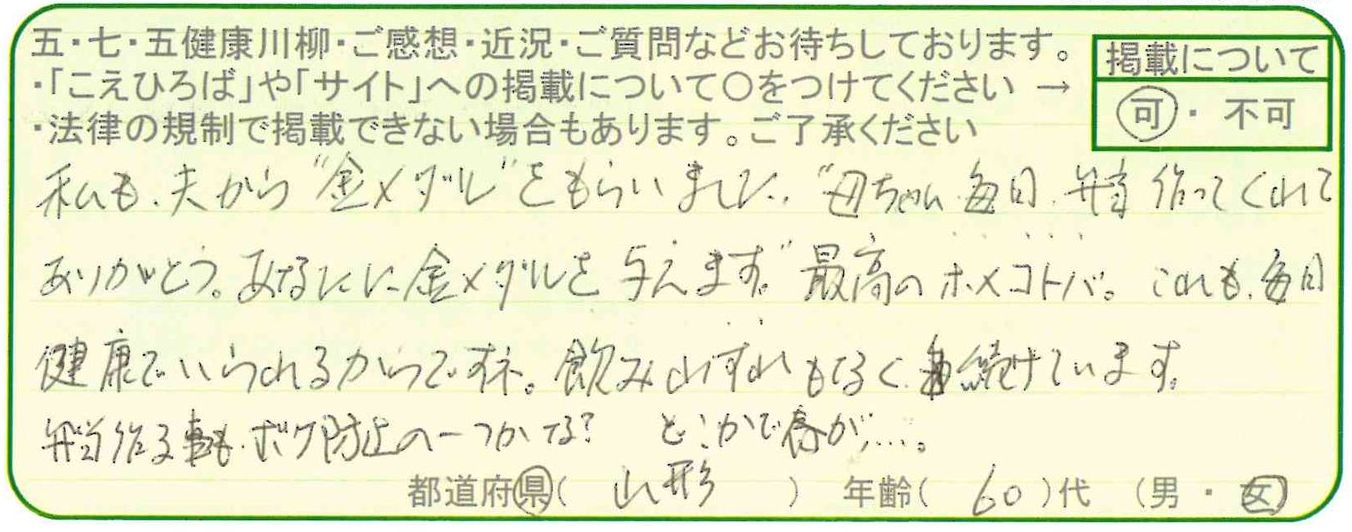 五・七・五健康川柳・ご感想・近況・ご質問などお待ちしております。
・「こえひろば」や「サイト」への掲載について○をつけてください →
・法律の規制で掲載できない場合もあります。ご了承ください
掲載について
可・不可
私も、夫から“金メダル”をもらいました。“母ちゃん毎日、弁当作ってくれて
ありがとう。あなたに金メダルを与えます。”最高のホメコトバ。これも、毎日
健康でいられるからですネ。飲みわすれもなく続けています。
弁当作る事も、ボケ防止の一つかな? どこかで春が…。
都道府県( 山形 ) 年齢( 60 )代 (男・女)